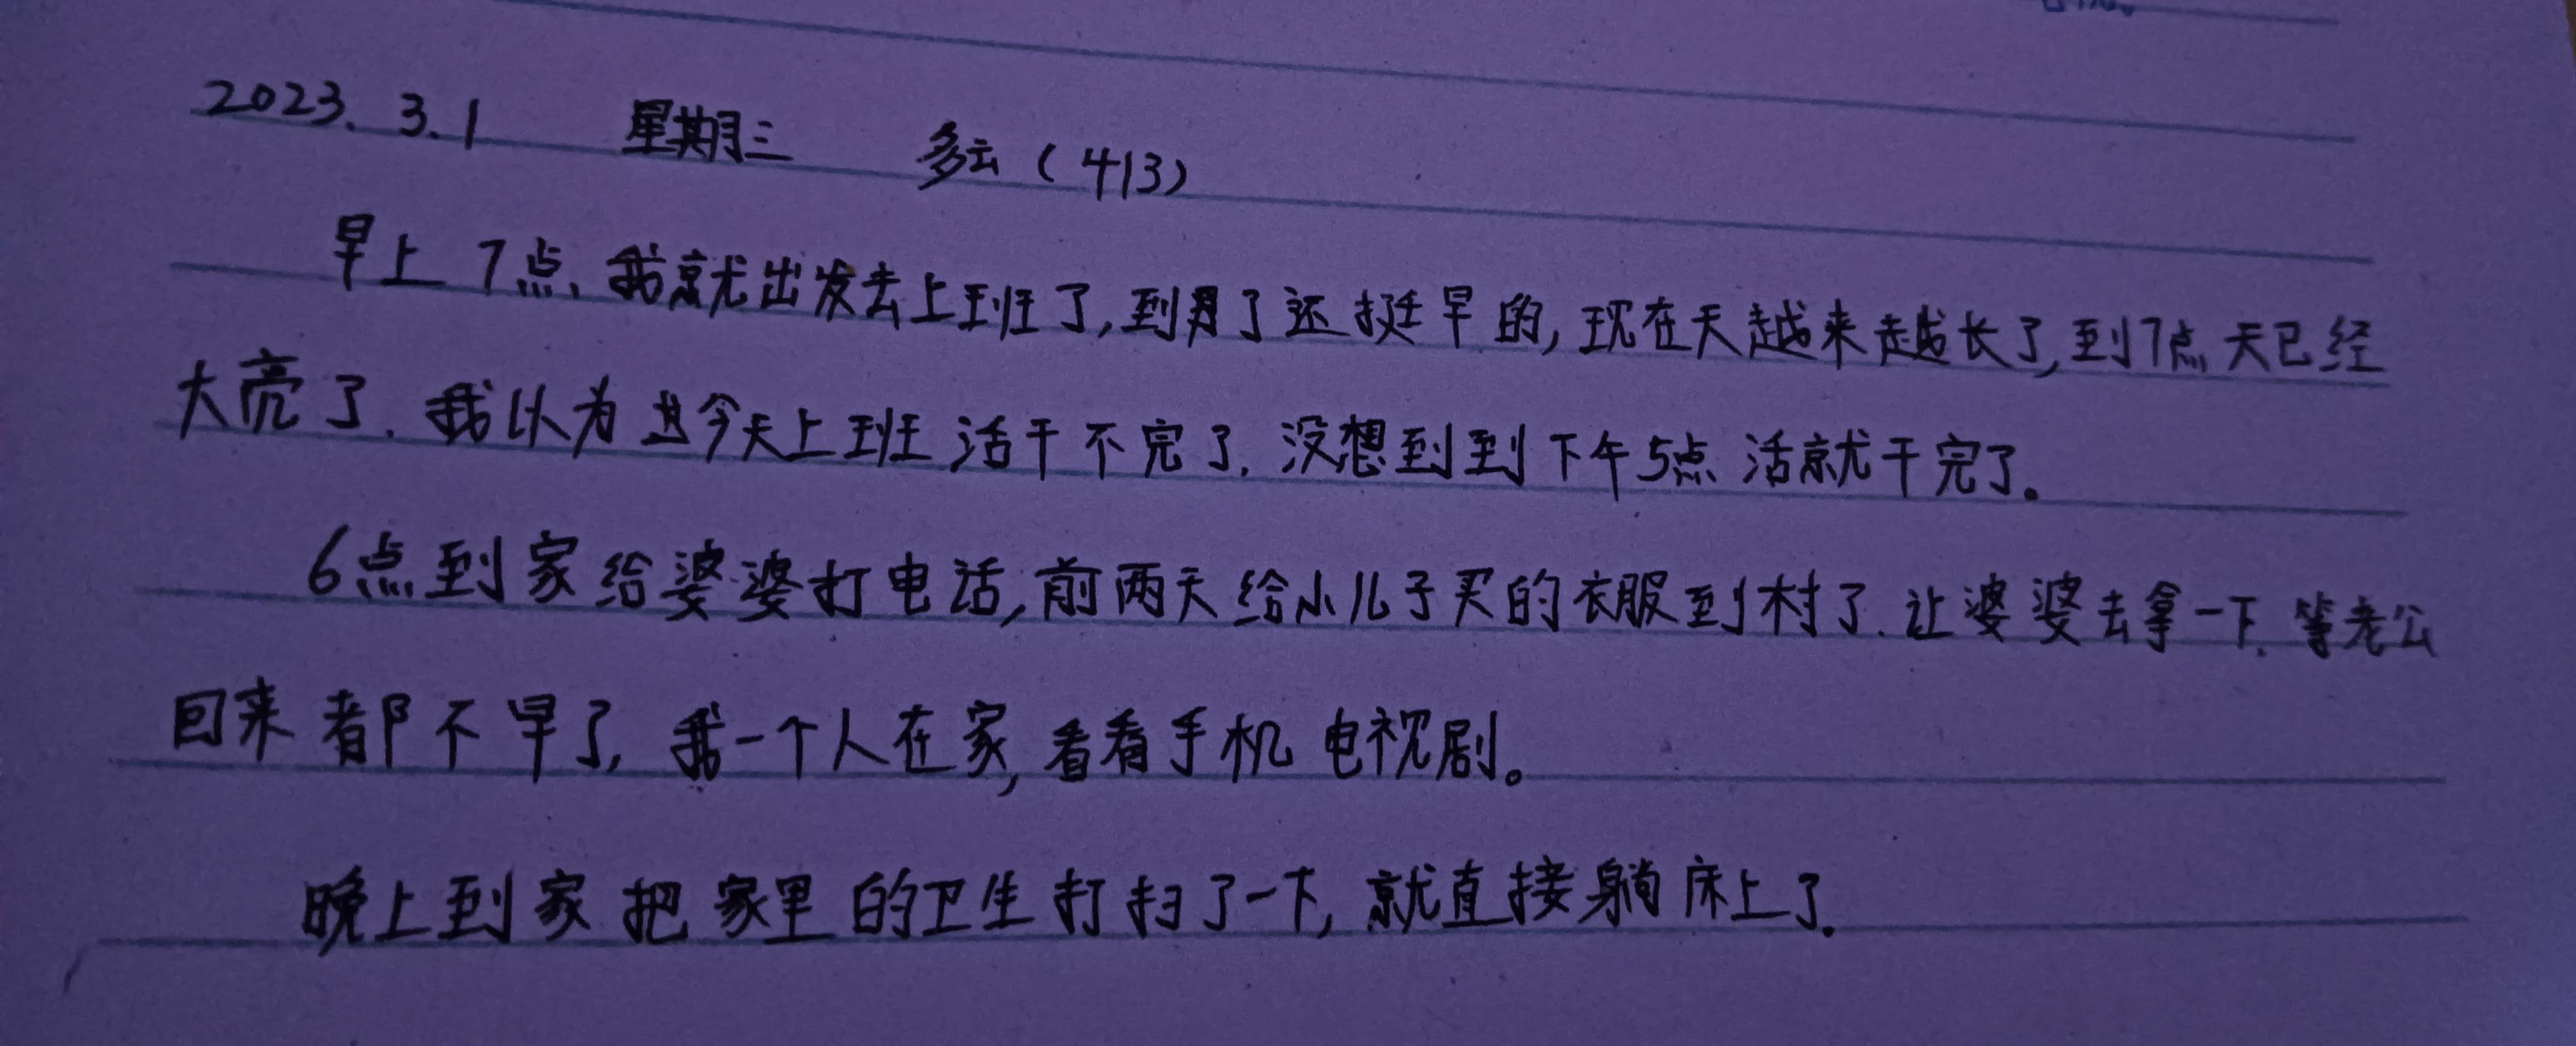 2023.3.1 星期三 多云（413）
早上7点，我就出发去上班了，到了还挺早的，现在天越来越长了，到7点天已经
大亮了．我以为今天上班活干不完了．没想到到下午5点活就干完了。
6点到家给婆婆打电话，前两天给小儿子买的衣服到村了．让婆婆去拿一下．等老公
回来都不早了，我一个人在家，看看手机电视剧。
晚上到家把家里的卫生打扫了一下，就直接躺床上了．